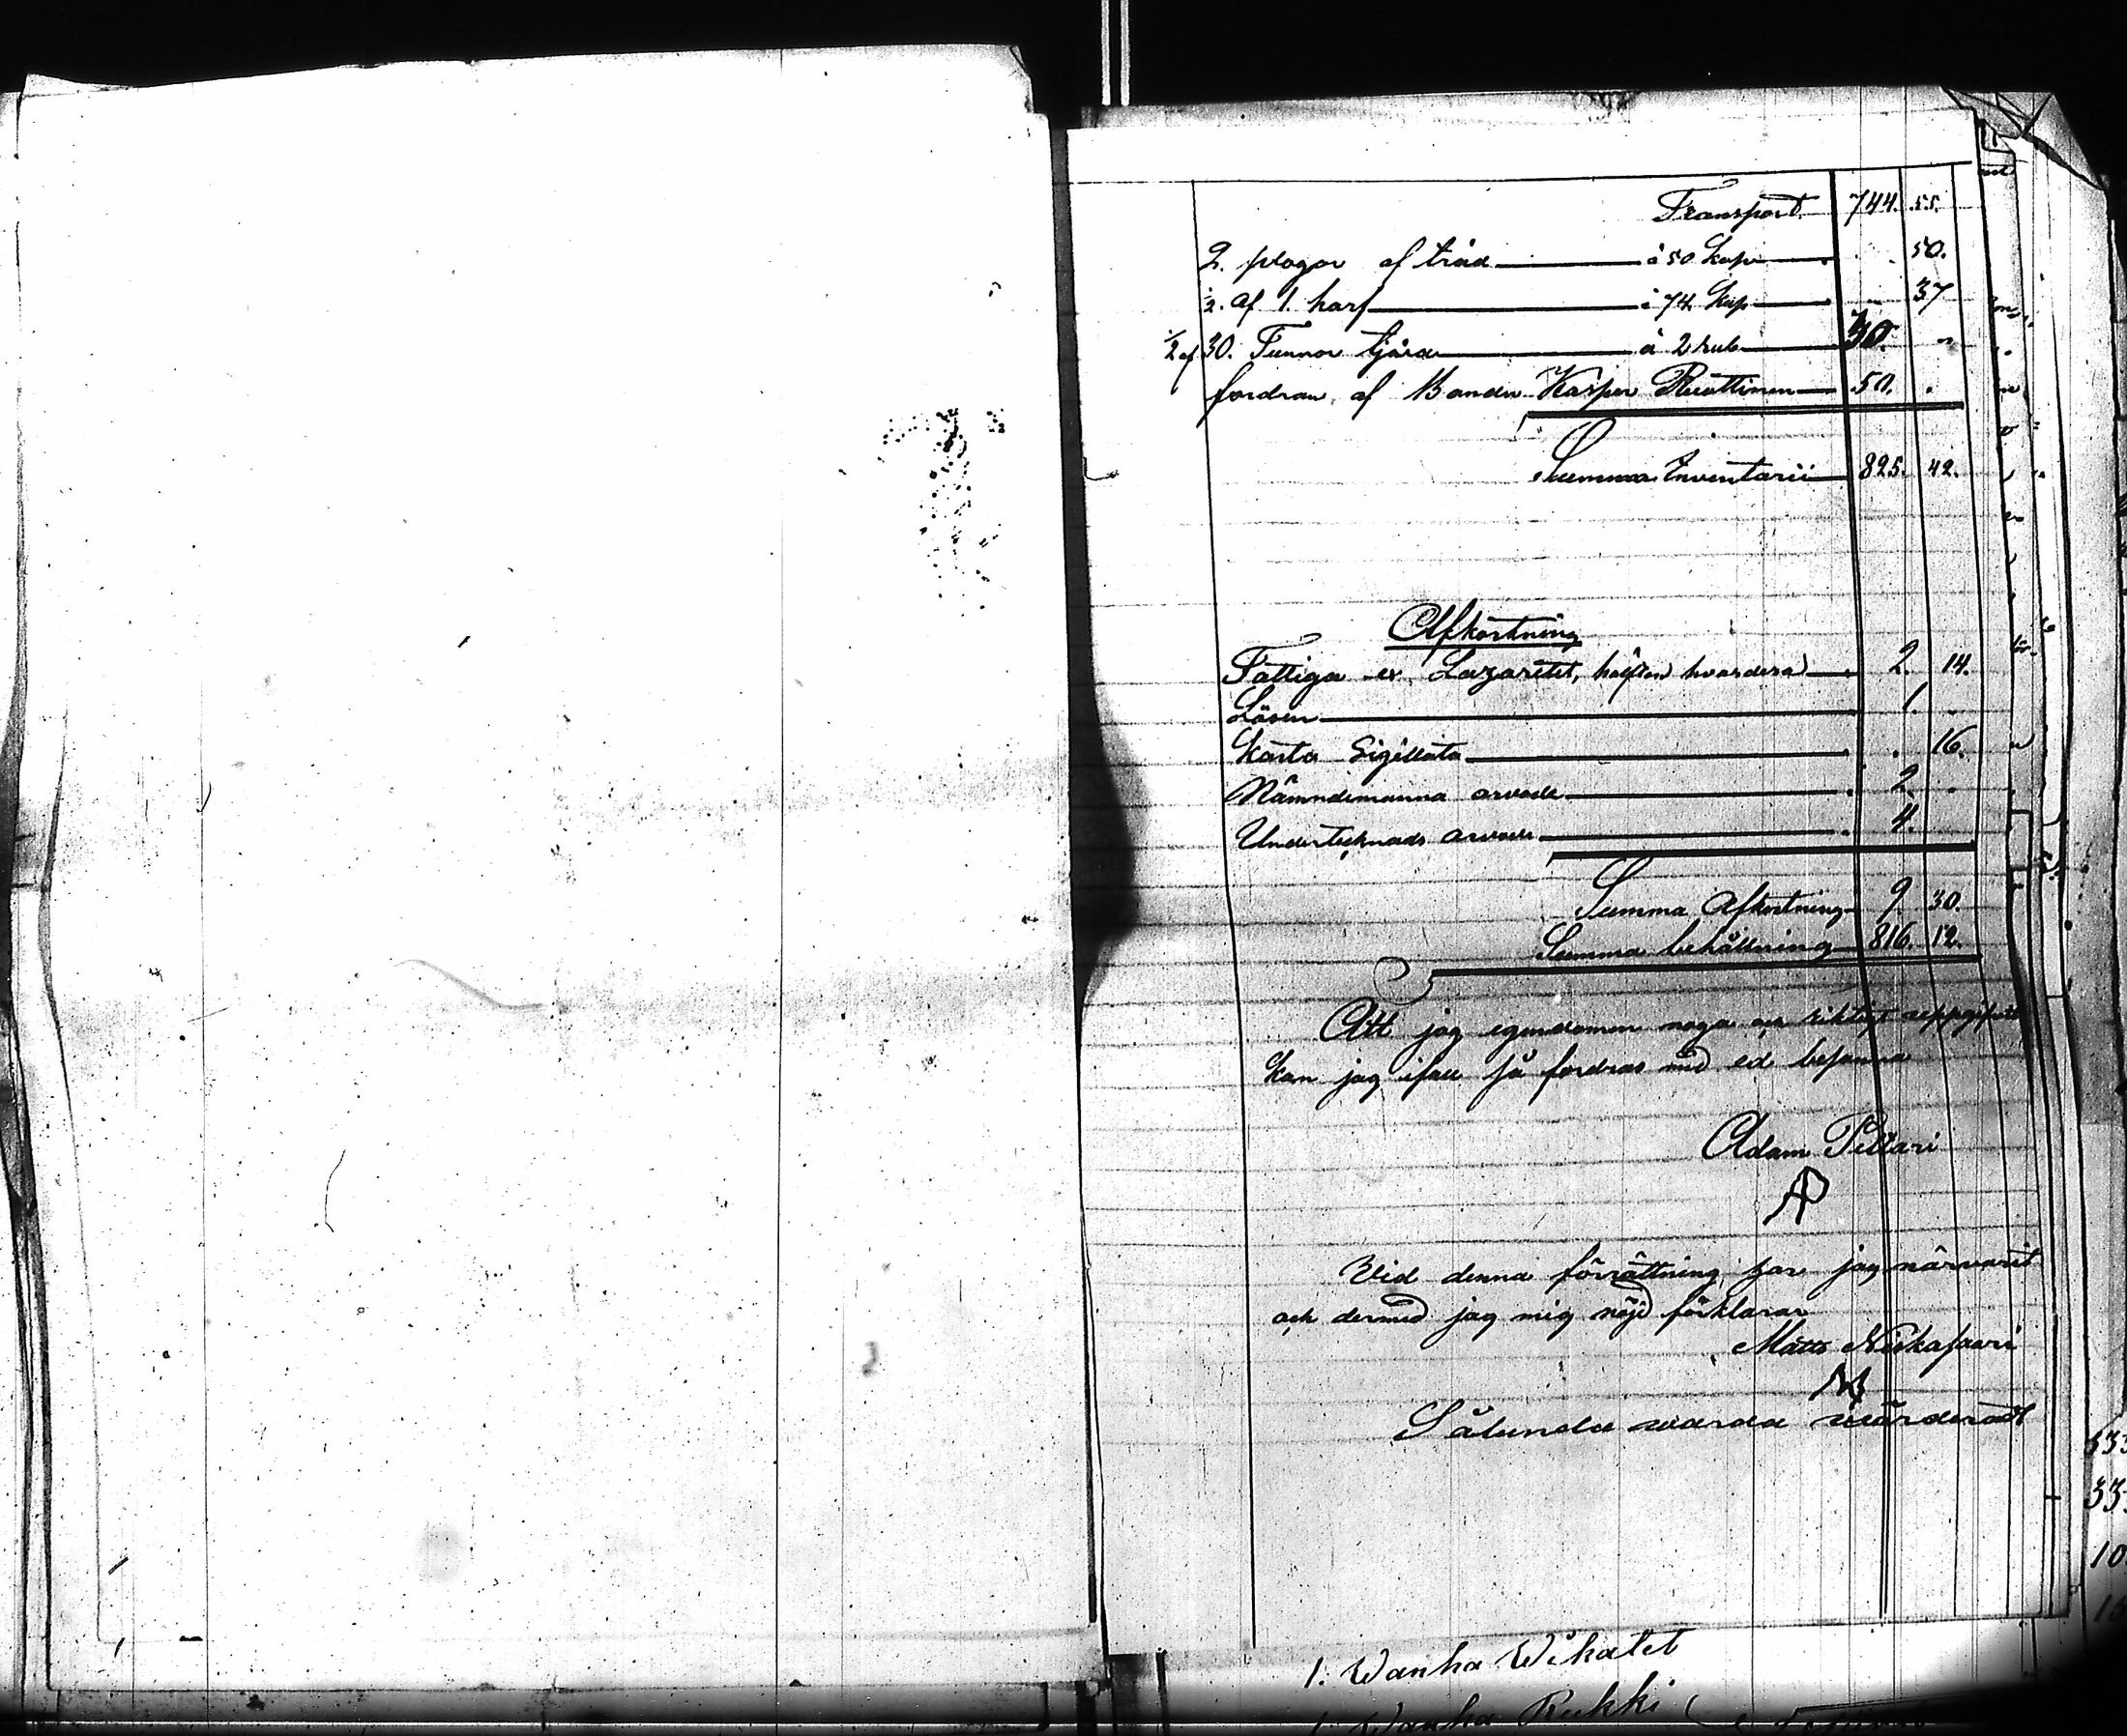 Transport 744. 55.
2. plogar af träd à 50 kop 50.
½. af 1. harf à 74 kop 37
½ af 30. Tunnor tjära à 2 rub 30. "
fordran af Bonden Kasper Ruottinen 50. .
Summa Inventarii 825. 42.
Afkortning
Fattiga ex Lazaretet, hälften hvardera 2. 14.
Lösen 1. .
Karta Sigillata . 16.
Nämndemanna arvode 2. .
Undertecknads arvode 4.
Summa Afkortning 9. 30.
Summa behållning 816. 12.
Att jag egendomen noga och riktigt uppgifvit
kan jag ifall så fordras med ed besanna
Adam Pittari
AP
Vid denna förrättning har jag närvarit
och dermed jag mig nöjd förklarar
Matts Niskasaari
Sålunda warda wärderadt
1. Wanha Wikatet
1. Wanha Rukki